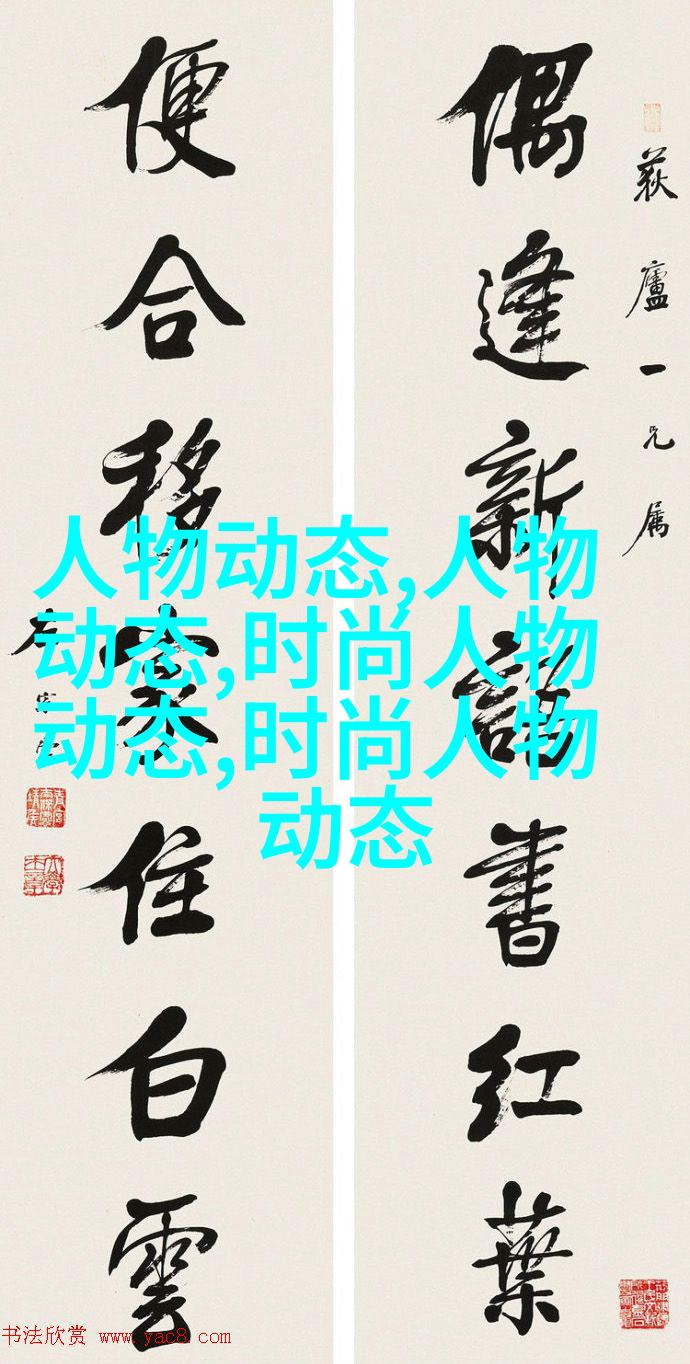 荻廬一兄属
偶逢新語書红葉
便合移家住白雲
左宗棠
人物动态,人物
动态,时尚人物
动态,时尚人物
动态
书法欣赏 www.yac8.com